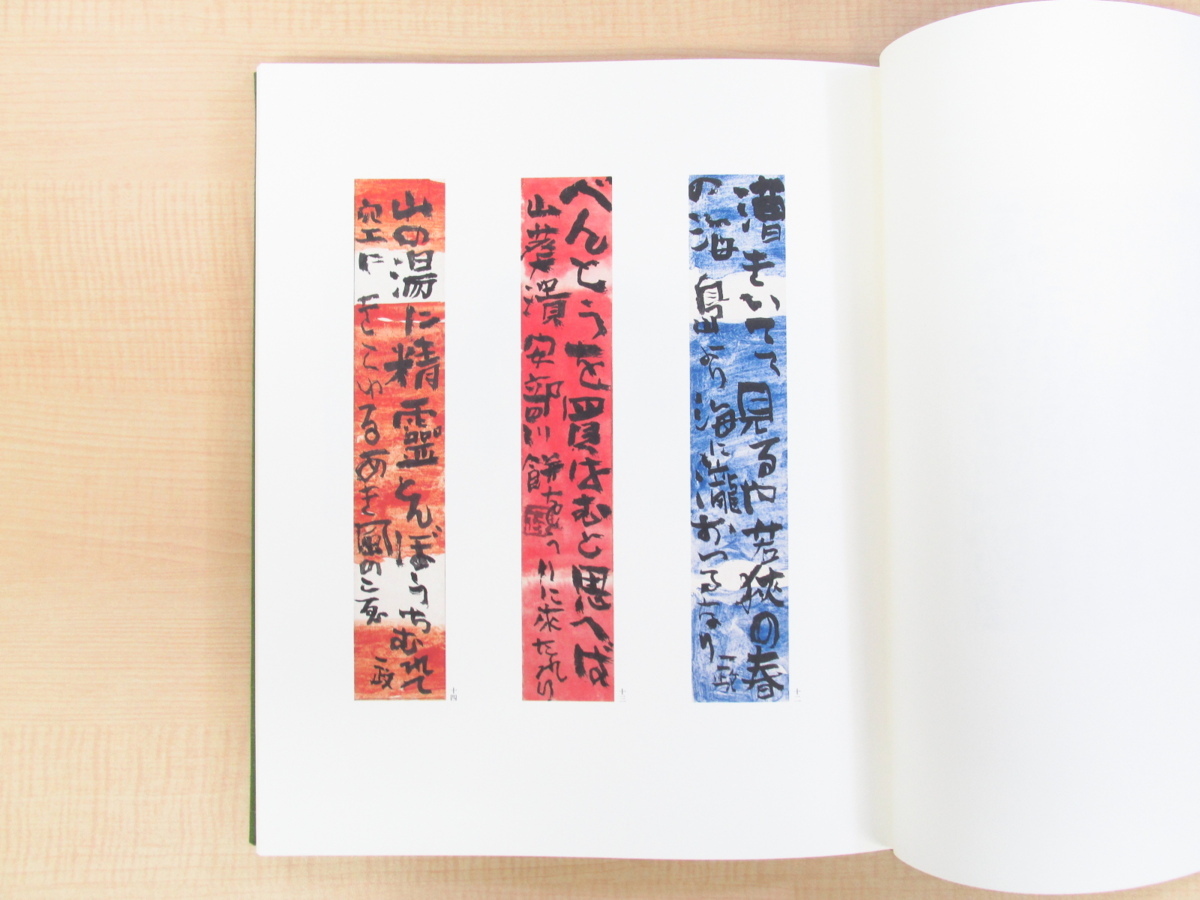 漕をいてゝ見るや若狭の春
の海島より海に瀧おつるなり
一政
十二
べんとうを買はむと思へば
山葵漬安部川餅ばかりに来たれり
十三
山の湯に精靈とんぼうちむれて
空にきているあき風のころ
一政
十四